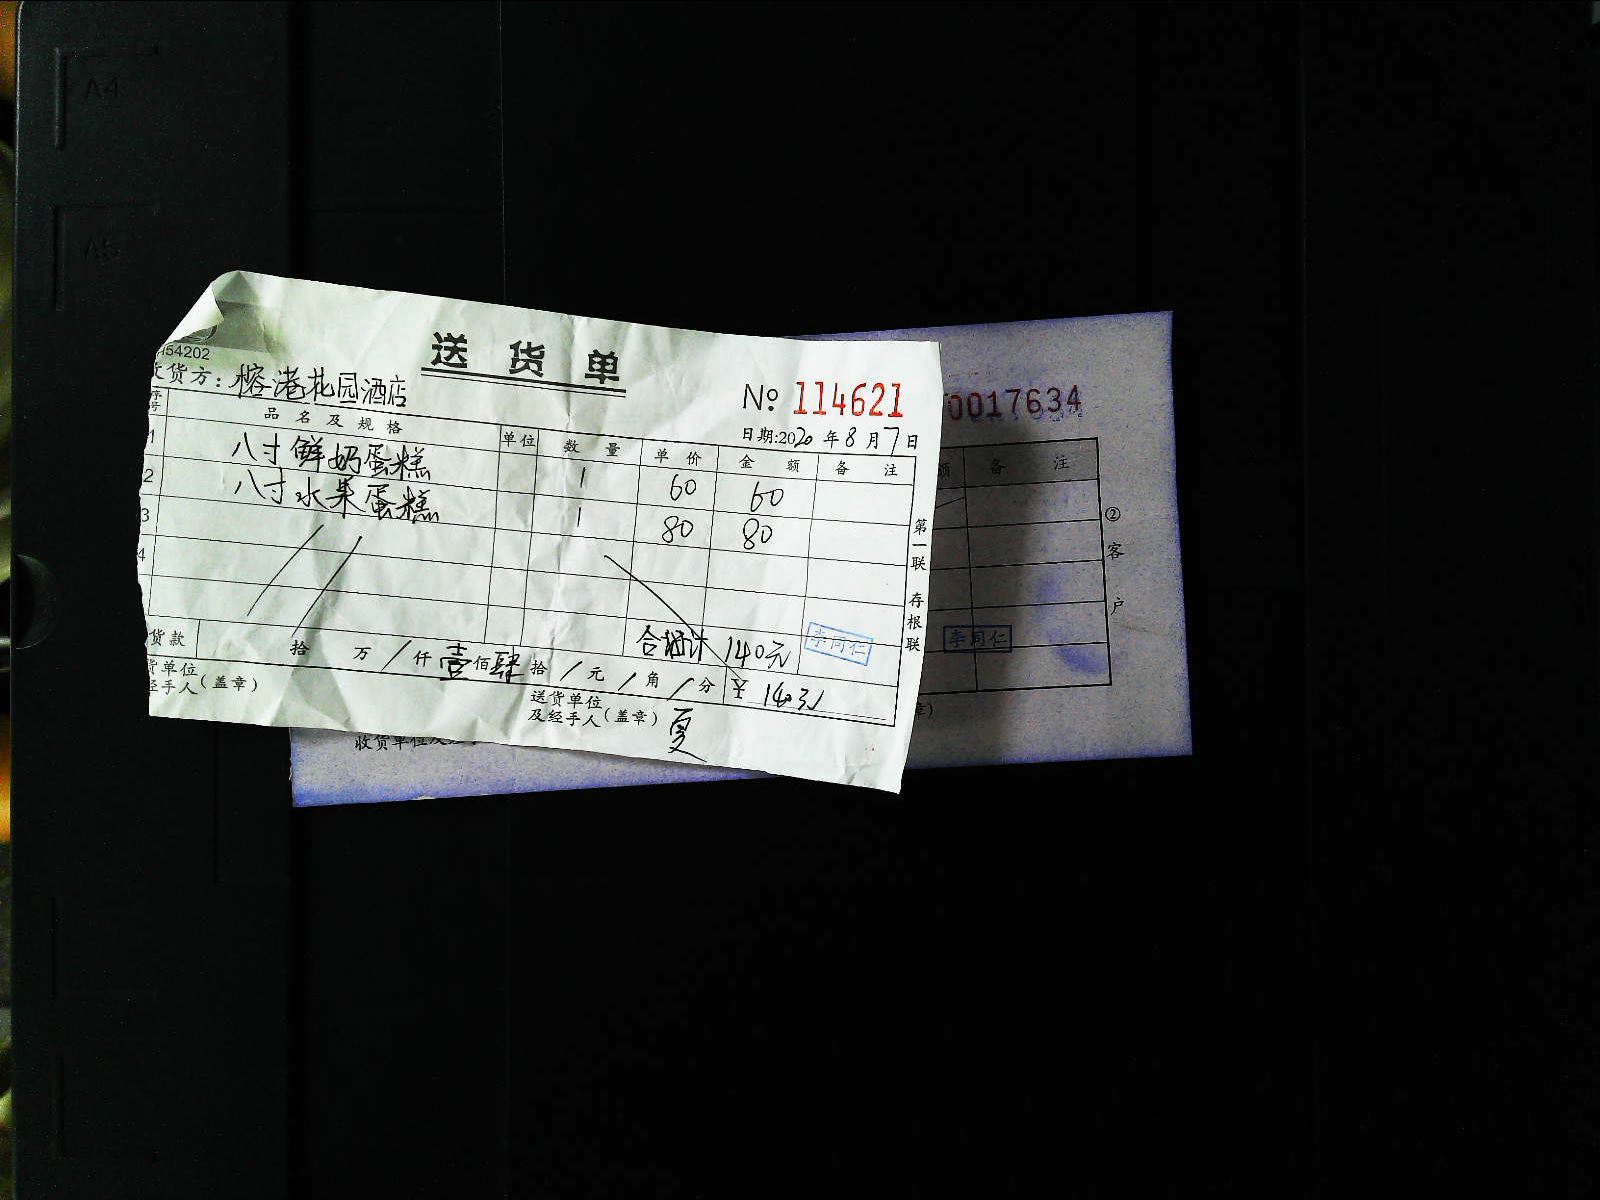 A4
A5
154202
送货单
收货方：榕港花园酒店
№ 114621
日期:2020年8月7日
序号 品名及规格 单位 数量 单价 金额 备注
1 八寸鲜奶蛋糕 1 60 60
2 八寸水果蛋糕 1 80 80
3
4
合计 140元
李同仁
货款 拾 万 / 仟 壹 佰 肆 拾 / 元 / 角 / 分 ¥
货单位
经手人(盖章)
送货单位
及经手人(盖章) 夏
第一联 存根联
0017634
额 备注
②客户
李同仁
章)
收货单位及经手